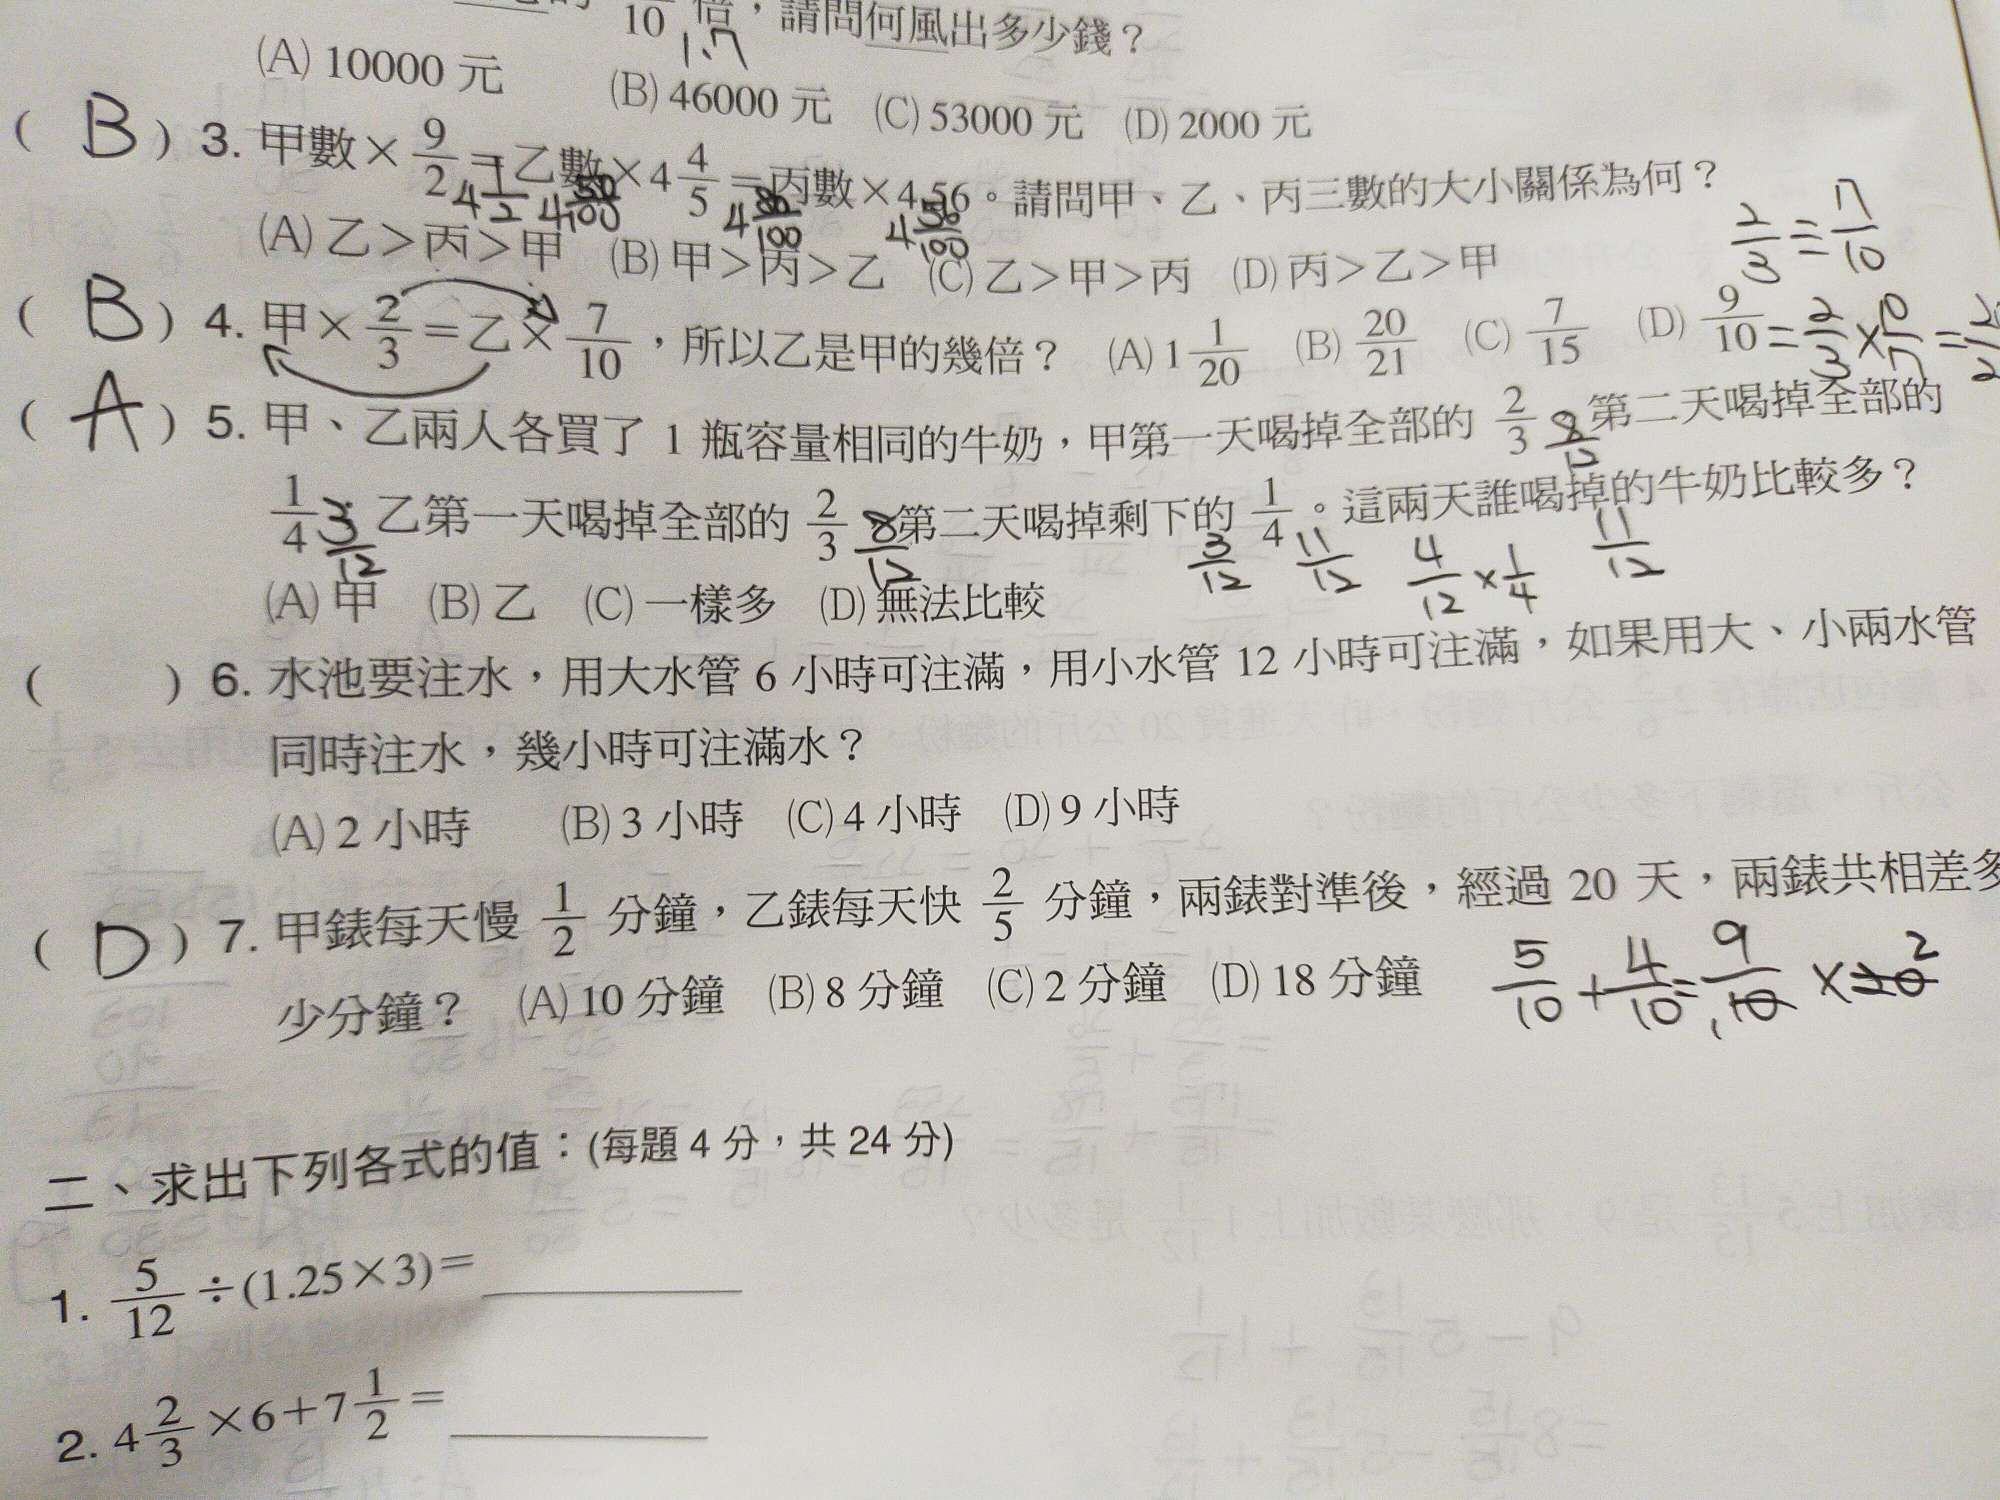 10 倍，請問何風出多少錢？
1.7
(A) 10000 元 (B) 46000 元 (C) 53000 元 (D) 2000 元
( B ) 3. 甲數×9/2=乙數×4 4/5=丙數×4.56。請問甲、乙、丙三數的大小關係為何？
4 1/2 4 50/100 4 80/100 4 56/100
(A) 乙＞丙＞甲 (B) 甲＞丙＞乙 (C) 乙＞甲＞丙 (D) 丙＞乙＞甲
2/3 ÷ 7/10
( B ) 4. 甲×2/3=乙×7/10，所以乙是甲的幾倍？ (A) 1 1/20 (B) 20/21 (C) 7/15 (D) 9/10
= 2/3 × 10/7 =
( A ) 5. 甲、乙兩人各買了 1 瓶容量相同的牛奶，甲第一天喝掉全部的 2/3，第二天喝掉全部的
8/12
1/4；乙第一天喝掉全部的 2/3，第二天喝掉剩下的 1/4。這兩天誰喝掉的牛奶比較多？
3/12 8/12 3/12 11/12 4/12 × 1/4 11/12
(A) 甲 (B) 乙 (C) 一樣多 (D) 無法比較
( ) 6. 水池要注水，用大水管 6 小時可注滿，用小水管 12 小時可注滿，如果用大、小兩水管
同時注水，幾小時可注滿水？
(A) 2 小時 (B) 3 小時 (C) 4 小時 (D) 9 小時
( D ) 7. 甲錶每天慢 1/2 分鐘，乙錶每天快 2/5 分鐘，兩錶對準後，經過 20 天，兩錶共相差多
少分鐘？ (A) 10 分鐘 (B) 8 分鐘 (C) 2 分鐘 (D) 18 分鐘
5/10 + 4/10 = 9/10 × 20 2
1
二、求出下列各式的值：(每題 4 分，共 24 分)
1. 5/12÷(1.25×3)=
2. 4 2/3×6+7 1/2=